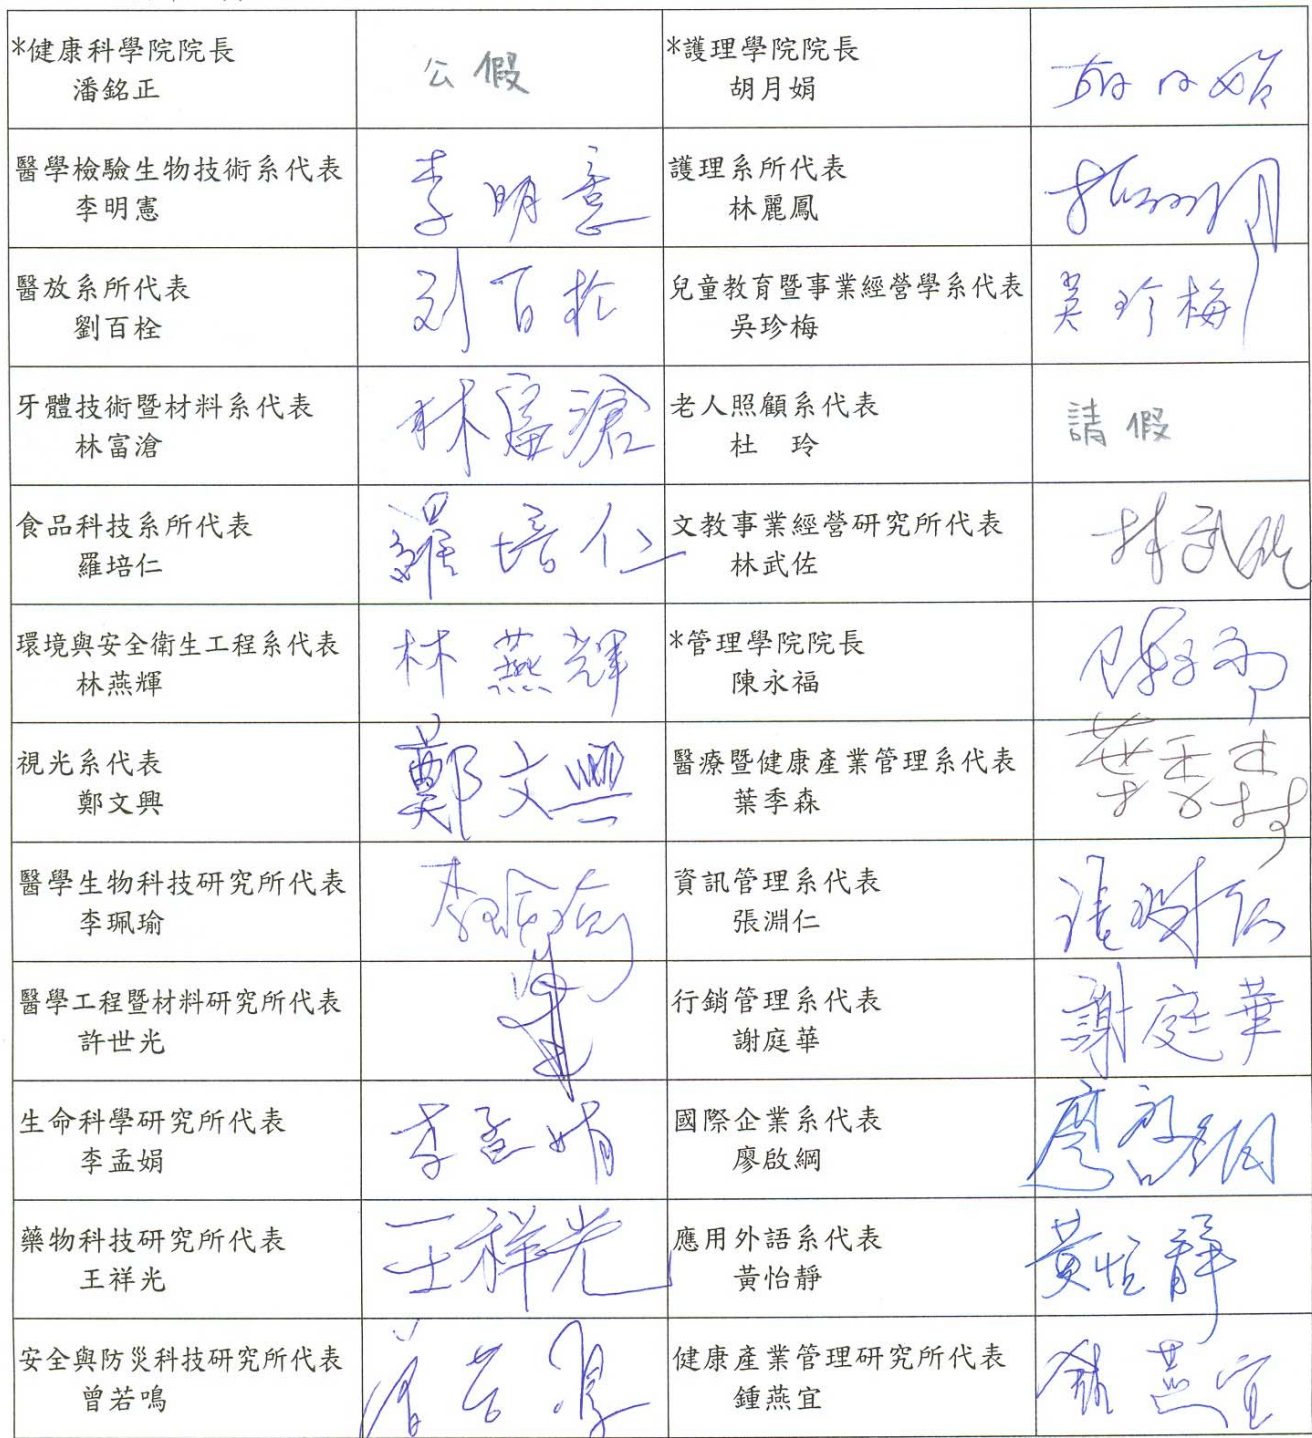 *健康科學院院長
潘銘正
公假
*護理學院院長
胡月娟
醫學檢驗生物技術系代表
李明憲
李明憲
護理系所代表
林麗鳳
醫放系所代表
劉百栓
刘百栓
兒童教育暨事業經營學系代表
吳珍梅
吳珍梅
牙體技術暨材料系代表
林富滄
林富滄
老人照顧系代表
杜 玲
請假
食品科技系所代表
羅培仁
羅培仁
文教事業經營研究所代表
林武佐
林武佐
環境與安全衛生工程系代表
林燕輝
林燕輝
*管理學院院長
陳永福
視光系代表
鄭文興
鄭文興
醫療暨健康產業管理系代表
葉季森
葉季森
醫學生物科技研究所代表
李珮瑜
資訊管理系代表
張淵仁
醫學工程暨材料研究所代表
許世光
行銷管理系代表
謝庭華
謝庭華
生命科學研究所代表
李孟娟
李孟娟
國際企業系代表
廖啟綱
廖啟綱
藥物科技研究所代表
王祥光
王祥光
應用外語系代表
黃怡靜
黃怡靜
安全與防災科技研究所代表
曾若鳴
健康產業管理研究所代表
鍾燕宜
鍾燕宜